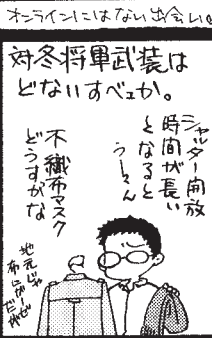 オンラインにはない出会い
対冬将軍武装は
どないすべェか。
シャッター開放
時間が長い
となると
うーん
不織布マスク
どうすかな
地元じゃ